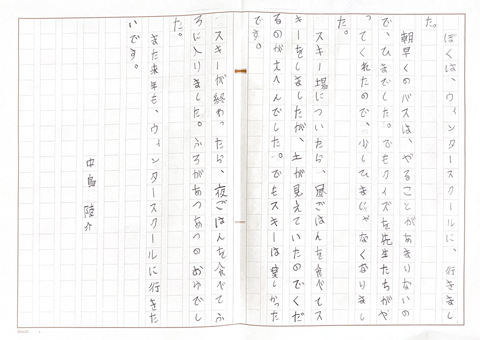 ぼくは、ウィンタースクールに、行きまし
た。
朝早くのバスは、やることがあまりないの
で、ひまでした。でもクイズを先生たちがや
ってくれたので、少しひまじゃなくなりまし
た。
スキー場についたら、昼ごはんを食べてス
キーをしましたが、土が見えていたのでくだ
るのが大へんでした。でもスキーは楽しかった
です。
スキーが終わったら、夜ごはんを食べてふ
ろに入りました。ふろがあつあつのおゆでし
た。
また来年も、ウィンタースクールに行きた
いです。
中島 陵介